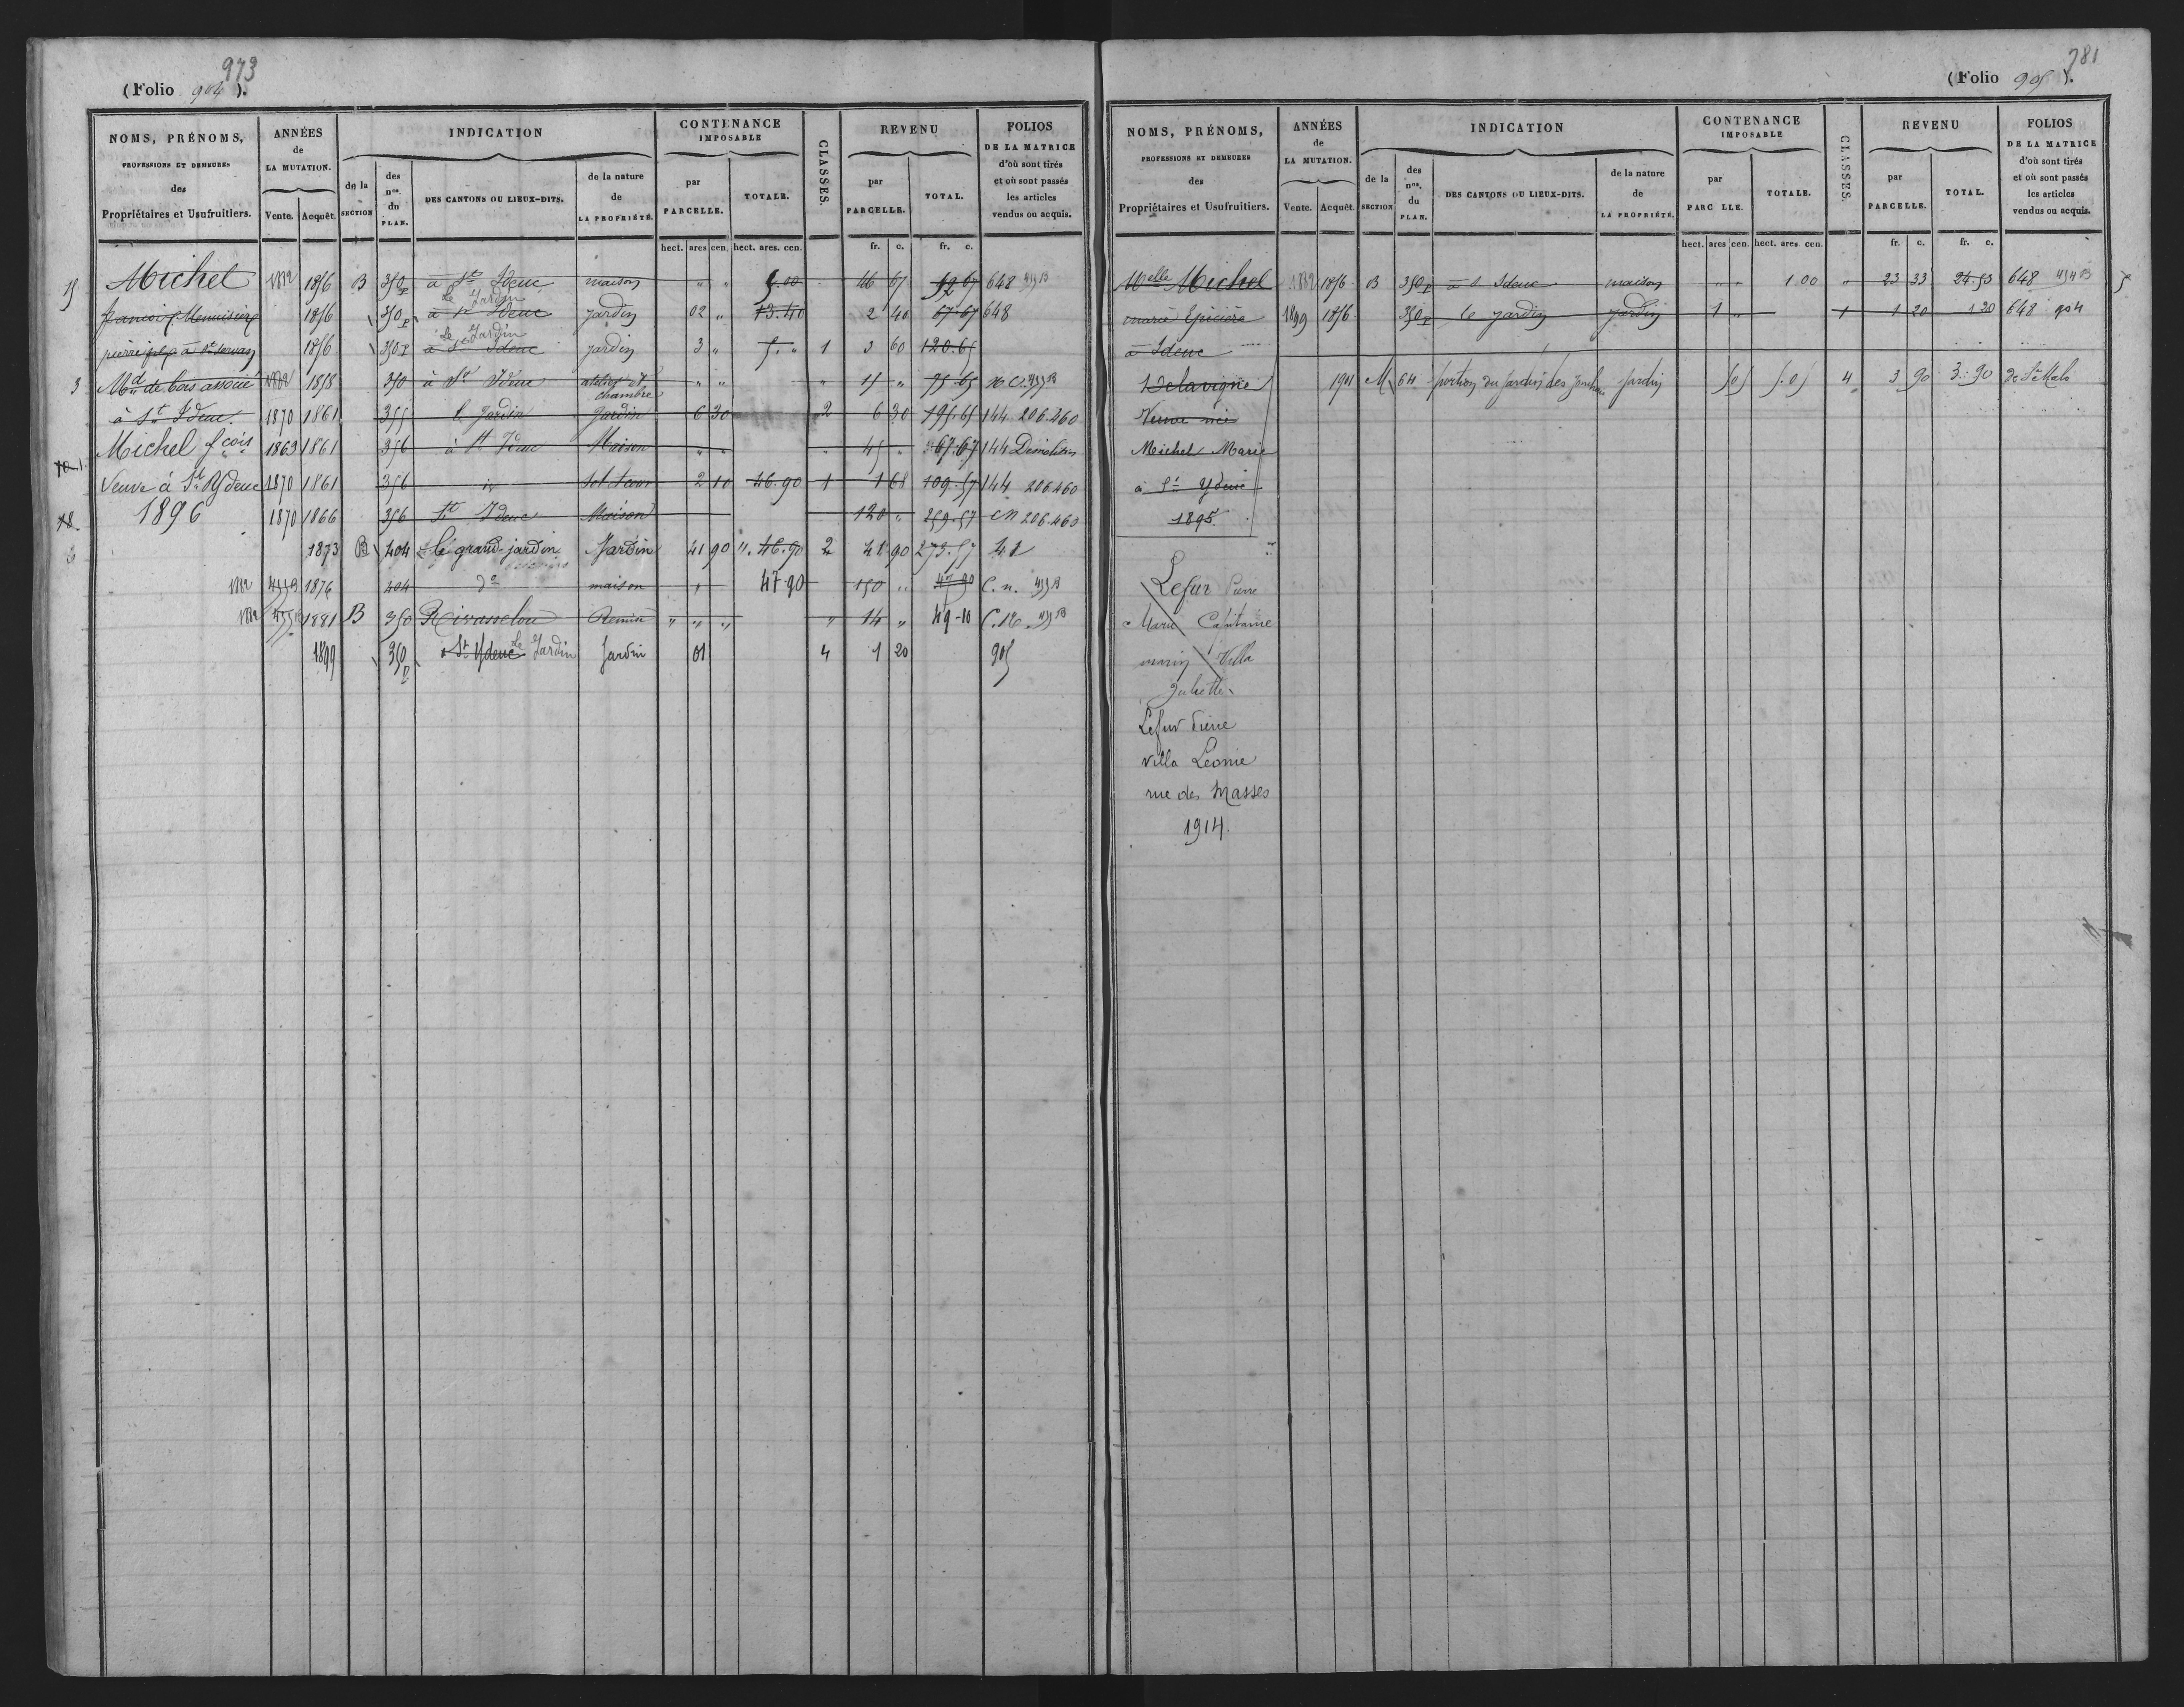 973
(Folio 904).
NOMS, PRÉNOMS, PROFESSIONS ET DEMEURES des Propriétaires et Usufruitiers.
ANNÉES de LA MUTATION. Vente. Acquêt.
INDICATION de la SECTION des nos. du PLAN. DES CANTONS OU LIEUX-DITS. de la nature de LA PROPRIÉTÉ.
CONTENANCE IMPOSABLE par PARCELLE. TOTALE.
CLASSES.
REVENU par PARCELLE. TOTAL.
FOLIOS DE LA MATRICE d'où sont tirés et où sont passés les articles vendus ou acquis.
hect. ares cen. hect. ares. cen. fr. c. fr. c.
15 Michel 1882 1856 B 350 p à St Ideuc maison " " 5.00 46 67 52 67 648
françois Menuisier 1856 350 p à St Ideuc Le Jardin jardin 02 " 13.40 2 40 67.67 648
pierre à St Servan 1856 350 p à St Ideuc Le Jardin jardin 3 " 5. " 1 3 60 120.65
3 Md de bois associé 1882 1858 350 à St Ideuc atelier et chambre " " " 15 " 75.65
à St Ideuc. 1870 1861 355 le Jardin Jardin 6 30 2 6 30 195.65 144 206.460
Michel fcois 1863 1861 356 à St Ideuc Maison " " " 45 " 67.67 144 Démolition
Veuve à St Ydeuc 1870 1861 356 id sol et cour 2 10 46.90 1 1 68 109.57 144 206.460
18 1896 1870 1866 356 St Ideuc Maison 120 " 259.57 CN 206.460
1873 B 404 le grand jardin Jardin 41 90 ". 46.90 2 41 90 273.57 41
1882 1876 404 do maison " 47.90 150 " 47.90 C.n.
1882 1881 B 350 Rivasselou Remise " " " " 14 " 49-10 C.N.
1899 350 p à St Ydeuc Le Jardin Jardin 01 4 1 20 905
781
(Folio 905).
NOMS, PRÉNOMS, PROFESSIONS ET DEMEURES des Propriétaires et Usufruitiers.
ANNÉES de LA MUTATION. Vente. Acquêt.
INDICATION de la SECTION des nos. du PLAN. DES CANTONS OU LIEUX-DITS. de la nature de LA PROPRIÉTÉ.
CONTENANCE IMPOSABLE par PARC LLE. TOTALE.
CLASSES.
REVENU par PARCELLE. TOTAL.
FOLIOS DE LA MATRICE d'où sont tirés et où sont passés les articles vendus ou acquis.
hect. ares cen. hect. ares. cen. fr. c. fr. c.
Melle Michel 1882 1856 B 350 p à St Ideuc maison " " 1 00 " 23 33 24.53 648
marie Epicière 1899 1856 350 p le jardin jardin 1 " 1 1 20 1 20 648 904
à Ideuc
Delavigne 1901 M 64 portion du Jardin des jardin 505 5.05 4 3 90 3.90 De St Malo
Veuve née
Michel Marie
à St Ydeuc
1895.
Lefur Pierre
Marie Capitaine
marin Villa
Juliette
Lefur Pierre
villa Léonie
rue des Masses
1914.